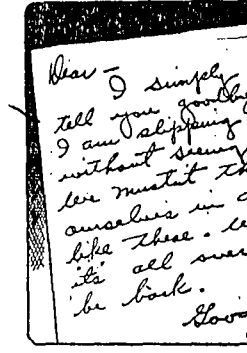 Dear —
I simply
tell you goodbye
I am slipping
without seeing
We mustn't th
ourselves in a
like these.
it's all over
be back.
Good